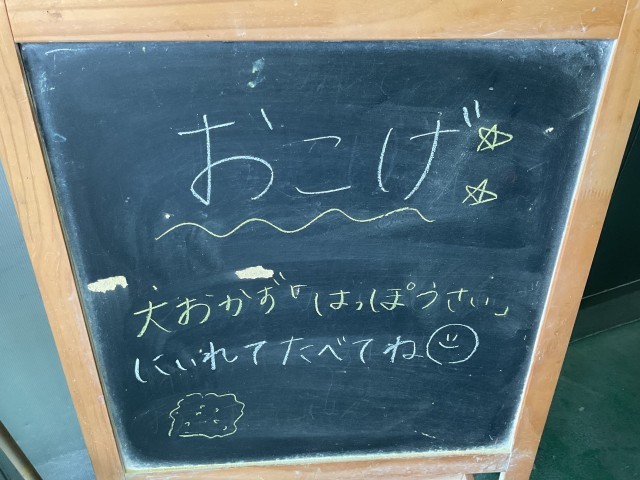 おこげ☆☆
大おかず「はっぽうさい」
にいれてたべてね